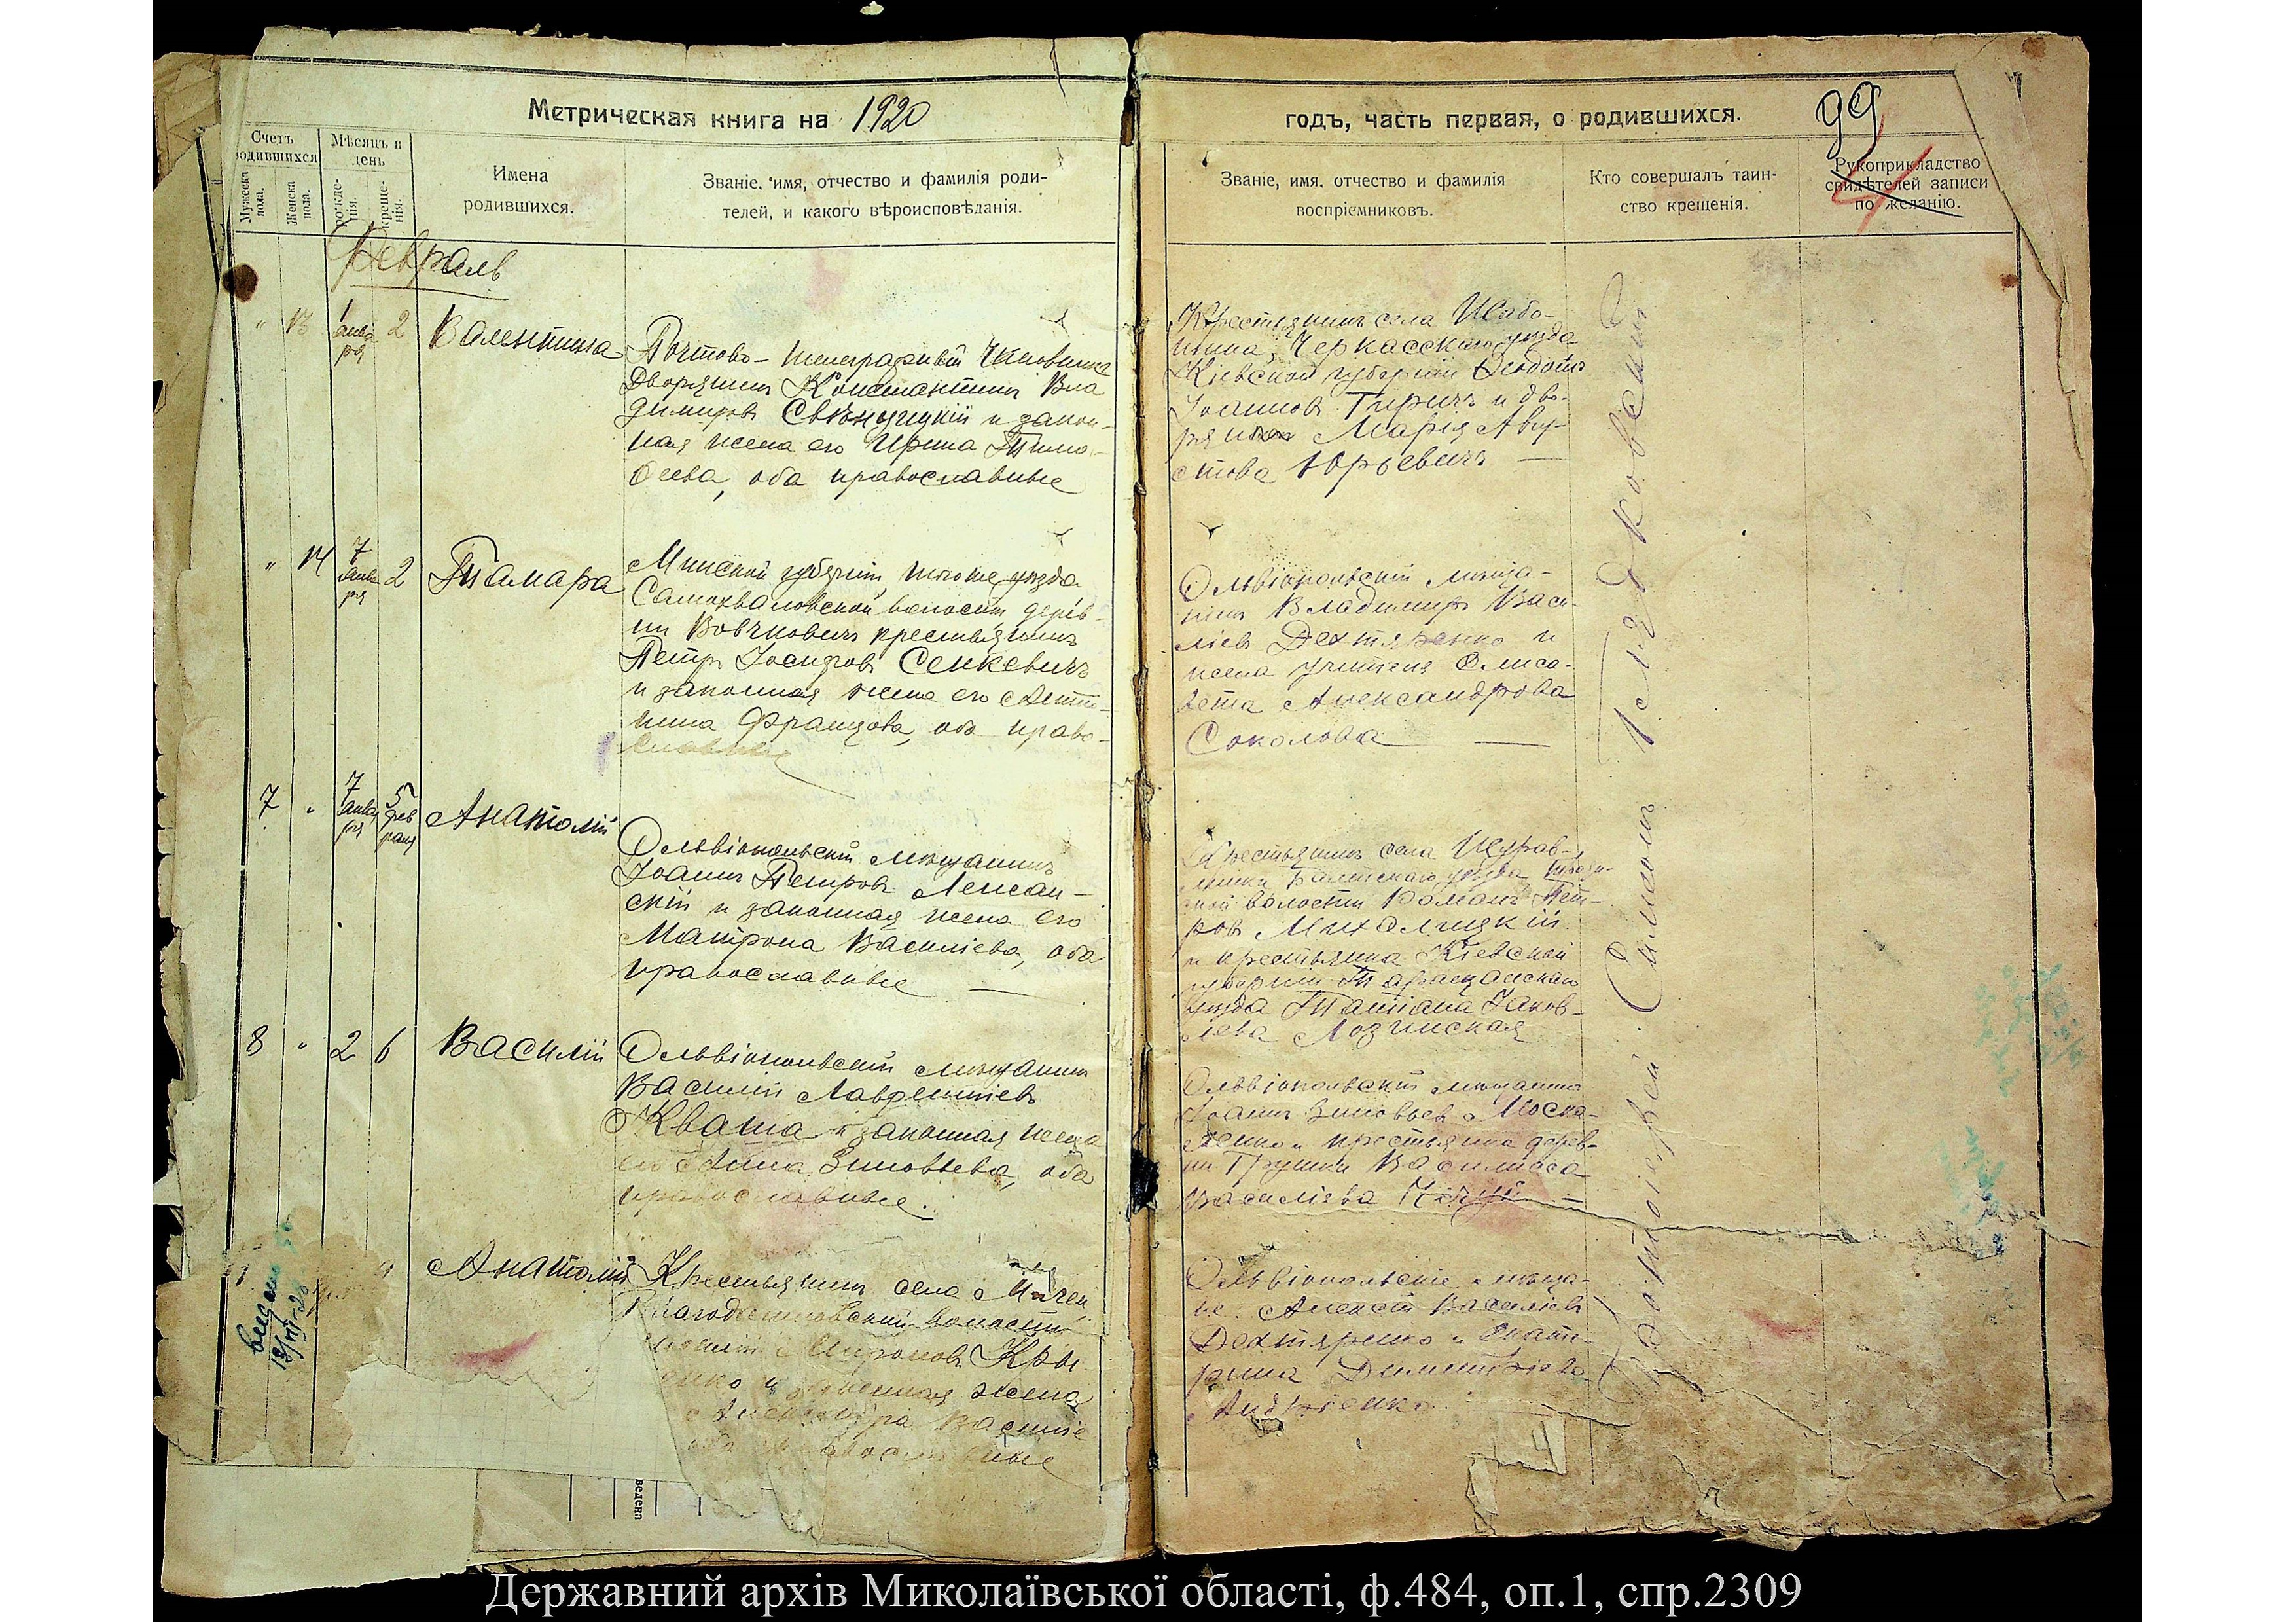 Метрическая книга на 1920
годъ, часть первая, о родившихся.
99
Счетъ родившихся
Мѣсяцъ и день
Мужеска пола.
Женска пола.
рожденія.
крещенія.
Имена
родившихся.
Званіе, имя, отчество и фамилія роди-
телей, и какого вѣроисповѣданія.
Званіе, имя, отчество и фамилія
воспріемниковъ.
Кто совершалъ таин-
ство крещенія.
Рукоприкладство
свидѣтелей записи
по желанію.
Февраль
" 13 1 января 2 Валентина
Почтово-телеграфный чиновникъ
Дворянинъ Константинъ Вла
димировъ и закон-
ная жена его Ирина Тимо-
ѳеева, оба православные
Крестьянинъ села
Черкасскаго уѣзда
Кіевской губерніи Ѳеодотъ
Іоанновъ и дво-
рянка Марія Авгу-
стова Юрьевичъ
" 14 7 января 2 Тамара
Минской губерніи, того же уѣзда
Самохваловской волости, дерев-
ни крестьянинъ
Петръ Іосифовъ Сенкевичъ
и законная жена его Анто-
нина Францова, оба право-
славные
Ольвіопольскій мѣща-
нинъ Владимиръ Васи-
ліевъ Дехтяренко и
жена учителя Елиса-
вета Александрова
Соколова
7 " 7 января 5 февраля Анатолій
Ольвіопольскій мѣщанинъ
Іоаннъ Петровъ
и законная жена его
Матрона Василіева, оба
православные
Крестьянинъ села
Балтскаго уѣзда
волости Романъ Пет-
ровъ
и крестьянка Кіевской
губерніи Таращанскаго
уѣзда Татіана Іаков-
лева Лозинская
8 " 2 6 Василій
Ольвіопольскій мѣщанинъ
Василій Лаврентіевъ
Кваша и законная жена
его Анна Зиновьева, оба
православные.
Ольвіопольскій мѣщанинъ
Іоаннъ Зиновьевъ Моска-
ленко и крестьянка дерев-
ни Грушки Василисса
Василіева
Анатолій
Крестьянинъ села
волости
Мироновъ
и законная жена
Александра Василіе
оба православные
Ольвіопольскіе мѣща-
не: Алексѣй Василіевъ
Дехтяренко и Екате-
рина Димитріева
Андріенко
Протоіерей Симеонъ
4
ведена
Державний архів Миколаївської області, ф.484, оп.1, спр.2309